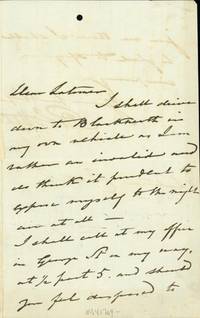 Dear Latimer
I shall drive
down to Blackheath in
my own vehicle as I am
rather an invalid and
do think it prudent to
expose myself to the night
air at all —
I shall call at my office
in George St on my way,
at ½ past 5. and should
you feel disposed to